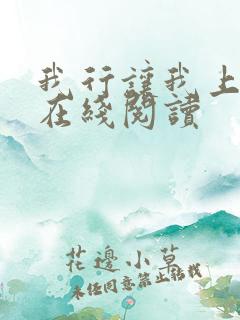 我行讓我上
在綫閱讀
花邊小草
未经同意禁止转载